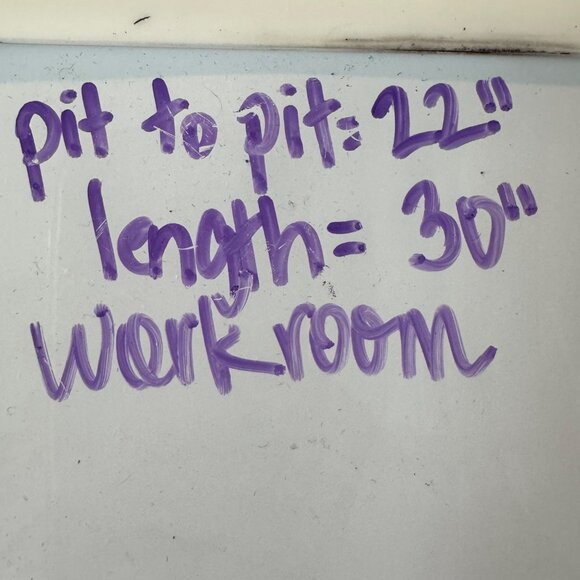 pit to pit: 22"
length= 30"
workroom